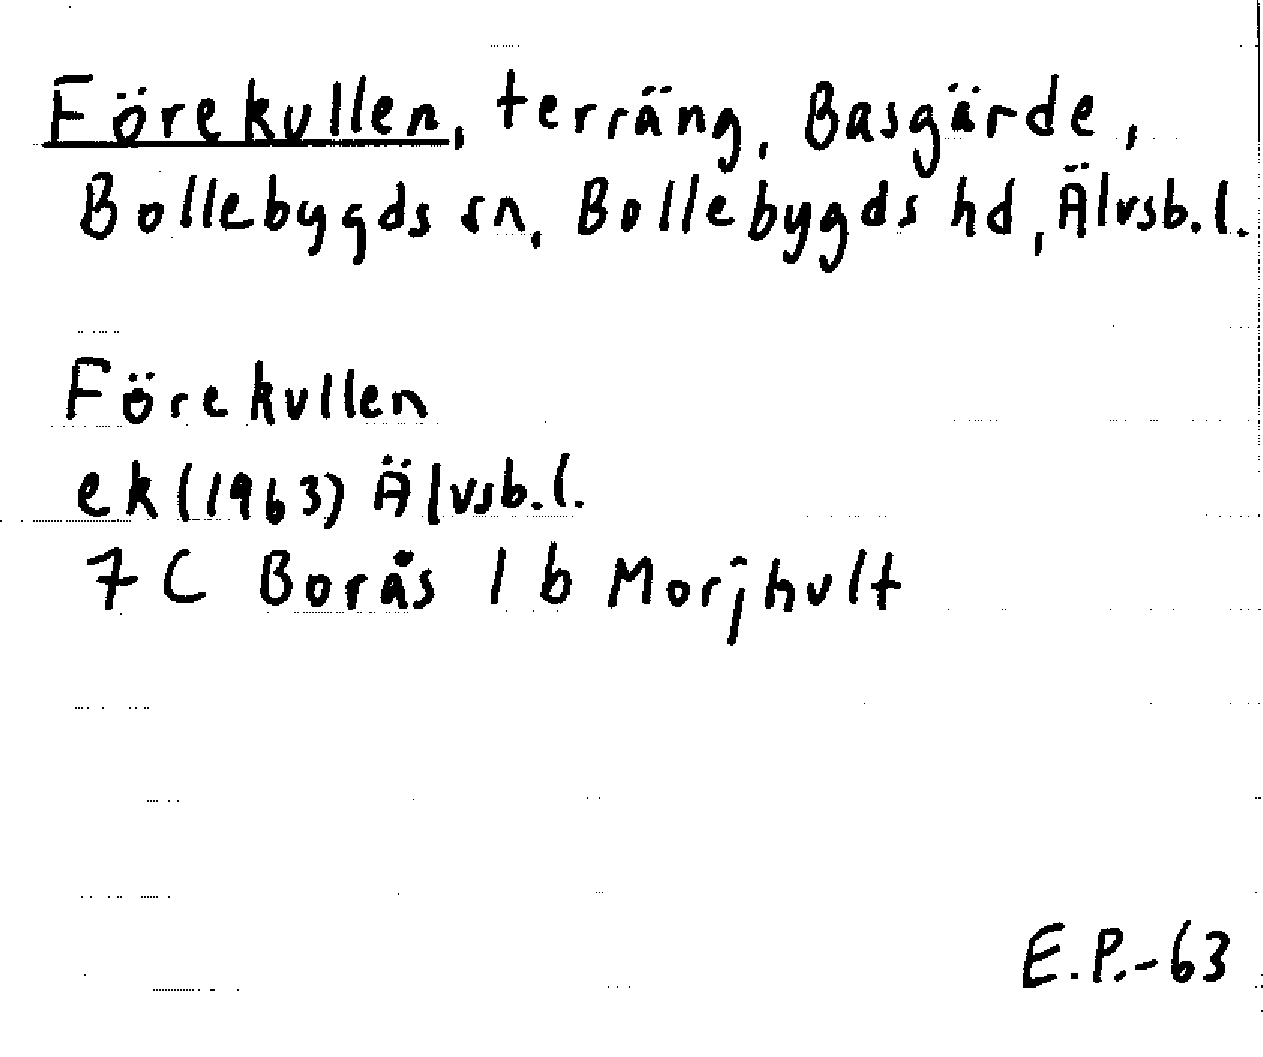 Förekullen, terräng, Basgärde,
Bollebygds sn, Bollebygds hd, Älvsb.l.
Förekullen
ek (1963) Älvsb.l.
7 C Borås 1 b Morjhult
E.P.-63